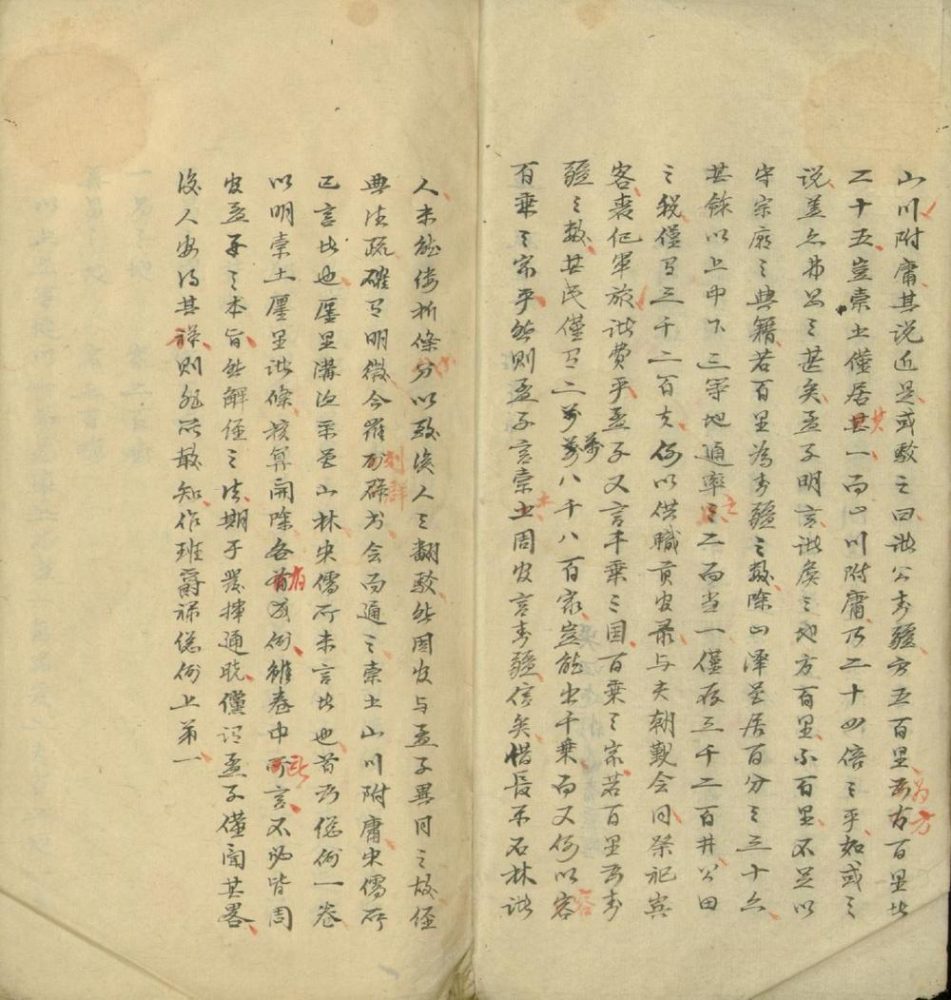 山川附庸其说近是或驳之曰诸公封疆方五百里为方百里者
二十五岂素土仅居其一而山川附庸乃二十四倍之乎如或之
说盖亦弗思之甚矣孟子明言诸矦之地方百里不百里不足以
守宗廟之典籍若百里為封疆之数除山泽並居百分之三十六
其餘以上中下三等地通率之二而当一僅存三千二百井公田
之税僅百三千二百夫何以供職貢安录与夫朝覲会同祭祀宾
客丧纪軍旅诸费乎孟子又言千乘之国百乘之家若百里为封
疆之数其民僅百二万八千八百家岂能出千乘而又何以容
百乘之家乎然则孟子言素土周官言封疆信矣惜長乐石林诸
人未能偻析條分以致後人之翻驳然周官与孟子異同之故经
典法疏確有明徵今羅列碌书会而通之素土山川附庸宋儒所
已言者也廛里溝洫采邑山林宋儒所未言者也首为总例一卷
以明素土廛里诸條核算開除各有成例雖卷中所言不必皆周
官孟子之本旨然解经之法期于發揮通晓僅谓孟子僅闻其畧
後人安得其祥则非所敢知作班爵禄总例上第一